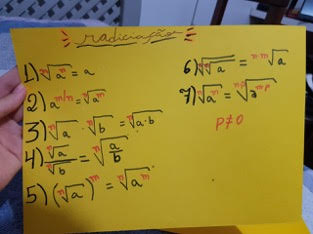 radiciação
1) ⁿ√aⁿ = a
2) a^m/n = ⁿ√a^m
3) ⁿ√a · ⁿ√b = ⁿ√a·b
4) ⁿ√a / ⁿ√b = ⁿ√a/b
5) (ⁿ√a)^m = ⁿ√a^m
6) ᵐ√ⁿ√a = ⁿ·ᵐ√a
7) ⁿ√a^m = ⁿᵖ√a^mp
p≠0